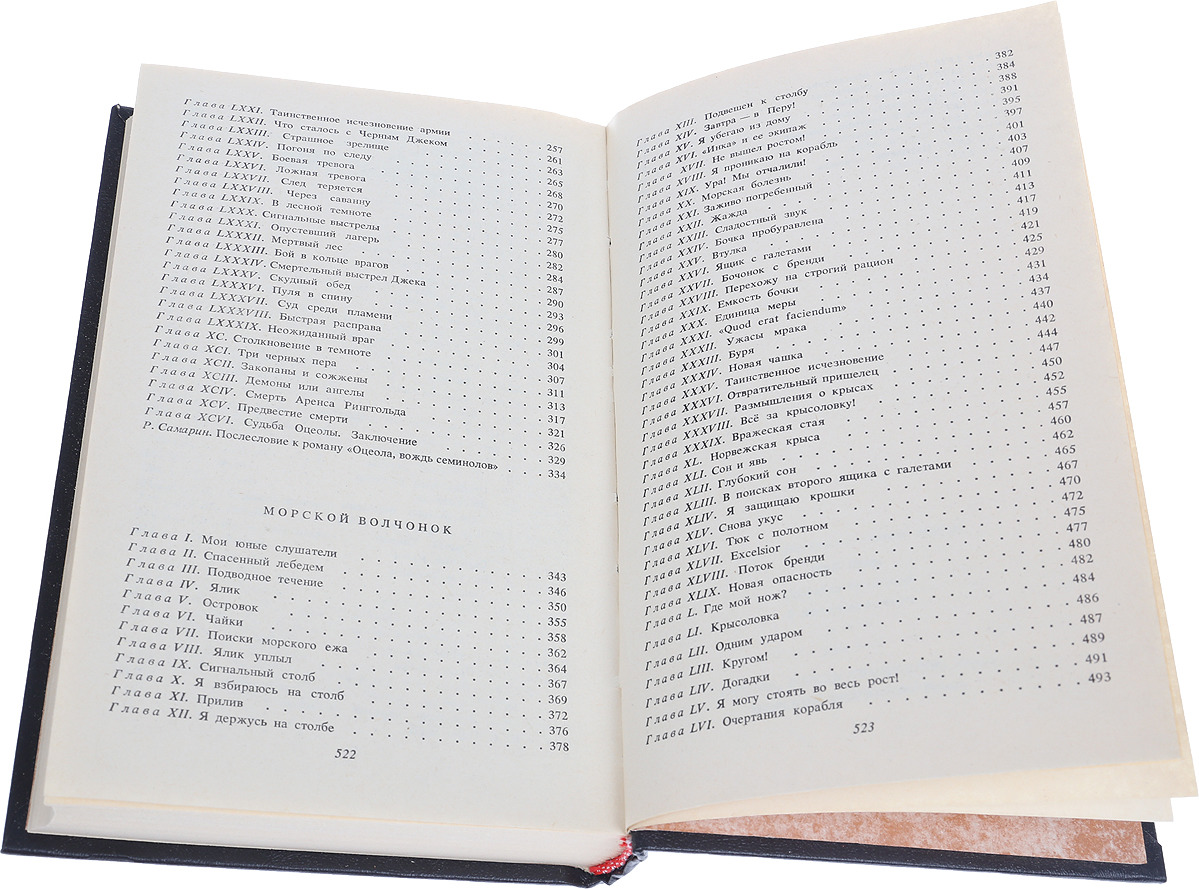 Глава LXXI. Таинственное исчезновение армии 257
Глава LXXII. Что сталось с Черным Джеком 261
Глава LXXIII. Страшное зрелище 263
Глава LXXIV. Погоня по следу 265
Глава LXXV. Боевая тревога 268
Глава LXXVI. Ложная тревога 270
Глава LXXVII. След теряется 272
Глава LXXVIII. Через саванну 275
Глава LXXIX. В лесной темноте 277
Глава LXXX. Сигнальные выстрелы 280
Глава LXXXI. Опустевший лагерь 282
Глава LXXXII. Мертвый лес 284
Глава LXXXIII. Бой в кольце врагов 287
Глава LXXXIV. Смертельный выстрел Джека 290
Глава LXXXV. Скудный обед 293
Глава LXXXVI. Пуля в спину 296
Глава LXXXVII. Суд среди пламени 299
Глава LXXXVIII. Быстрая расправа 301
Глава LXXXIX. Неожиданный враг 304
Глава XC. Столкновение в темноте 307
Глава XCI. Три черных пера 311
Глава XCII. Закопаны и сожжены 313
Глава XCIII. Демоны или ангелы 317
Глава XCIV. Смерть Аренса Ринггольда 321
Глава XCV. Предвестие смерти 326
Глава XCVI. Судьба Оцеолы. Заключение 329
Р. Самарин. Послесловие к роману «Оцеола, вождь семинолов» 334
МОРСКОЙ ВОЛЧОНОК
Глава I. Мои юные слушатели 343
Глава II. Спасенный лебедем 346
Глава III. Подводное течение 350
Глава IV. Ялик 355
Глава V. Островок 358
Глава VI. Чайки 362
Глава VII. Поиски морского ежа 364
Глава VIII. Ялик уплыл 367
Глава IX. Сигнальный столб 369
Глава X. Я взбираюсь на столб 372
Глава XI. Прилив 376
Глава XII. Я держусь на столбе 378
522
Глава XIII. Подвешен к столбу 382
Глава XIV. Завтра — в Перу! 384
Глава XV. Я убегаю из дому 388
Глава XVI. «Инка» и ее экипаж 391
Глава XVII. Не вышел ростом! 395
Глава XVIII. Я проникаю на корабль 397
Глава XIX. Ура! Мы отчалили! 401
Глава XX. Морская болезнь 403
Глава XXI. Заживо погребенный 407
Глава XXII. Жажда 409
Глава XXIII. Сладостный звук 411
Глава XXIV. Бочка пробуравлена 413
Глава XXV. Втулка 417
Глава XXVI. Ящик с галетами 419
Глава XXVII. Бочонок с бренди 421
Глава XXVIII. Перехожу на строгий рацион 425
Глава XXIX. Емкость бочки 429
Глава XXX. Единица меры 431
Глава XXXI. «Quod erat faciendum» 434
Глава XXXII. Ужасы мрака 437
Глава XXXIII. Буря 440
Глава XXXIV. Новая чашка 442
Глава XXXV. Таинственное исчезновение 444
Глава XXXVI. Отвратительный пришелец 447
Глава XXXVII. Размышления о крысах 450
Глава XXXVIII. Всё за крысоловку! 452
Глава XXXIX. Вражеская стая 455
Глава XL. Норвежская крыса 457
Глава XLI. Сон и явь 460
Глава XLII. Глубокий сон 462
Глава XLIII. В поисках второго ящика с галетами 465
Глава XLIV. Я защищаю крошки 467
Глава XLV. Снова укус 470
Глава XLVI. Тюк с полотном 472
Глава XLVII. Excelsior 475
Глава XLVIII. Поток бренди 477
Глава XLIX. Новая опасность 480
Глава L. Где мой нож? 482
Глава LI. Крысоловка 484
Глава LII. Одним ударом 486
Глава LIII. Кругом! 487
Глава LIV. Догадки 489
Глава LV. Я могу стоять во весь рост! 491
Глава LVI. Очертания корабля 493
523